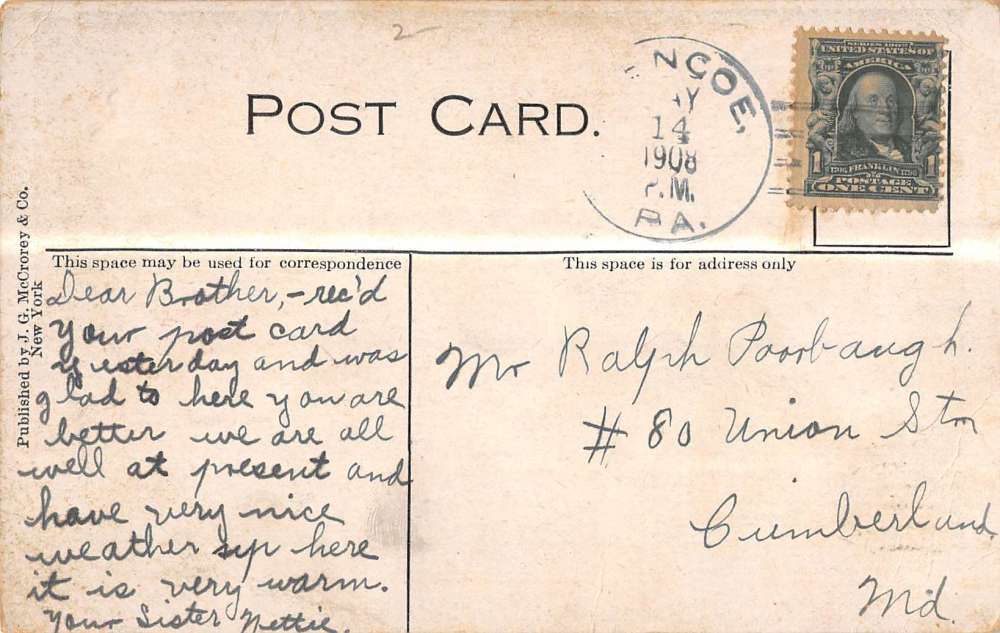 2
POST CARD.
NCOE,
14
1908
P.M.
PA.
SERIES 1902
UNITED STATES OF
AMERICA
1 1706 FRANKLIN 1790 1
POSTAGE
ONE CENT
Published by J. G. McCrorey & Co.
New York
This space may be used for correspondence
Dear Brother,-rec'd
your post card
yesterday and was
glad to here you are
better we are all
well at present and
have very nice
weather up here
it is very warm.
Your Sister Nettie.
This space is for address only
Mr Ralph Poorbaugh.
# 80 Union Str
Cumberland.
Md.